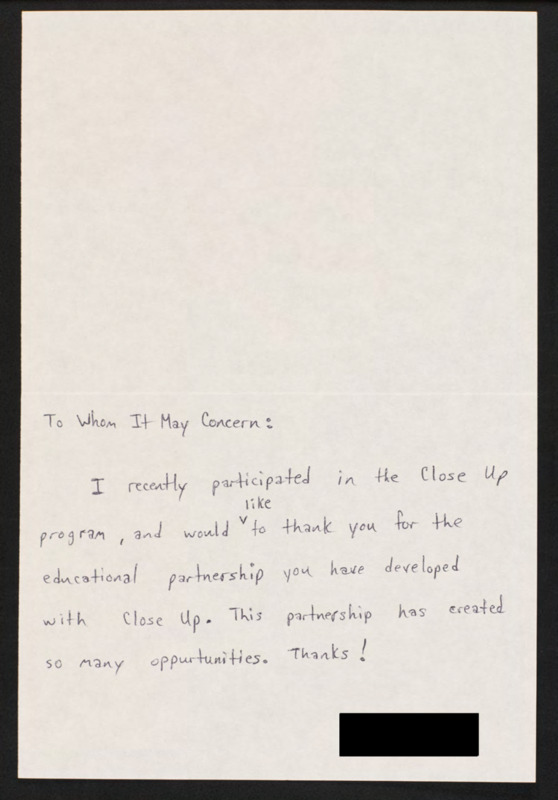 To Whom It May Concern:
I recently participated in the Close Up
like
program, and would ^ to thank you for the
educational partnership you have developed
with Close Up. This partnership has created
so many oppurtunities. Thanks!